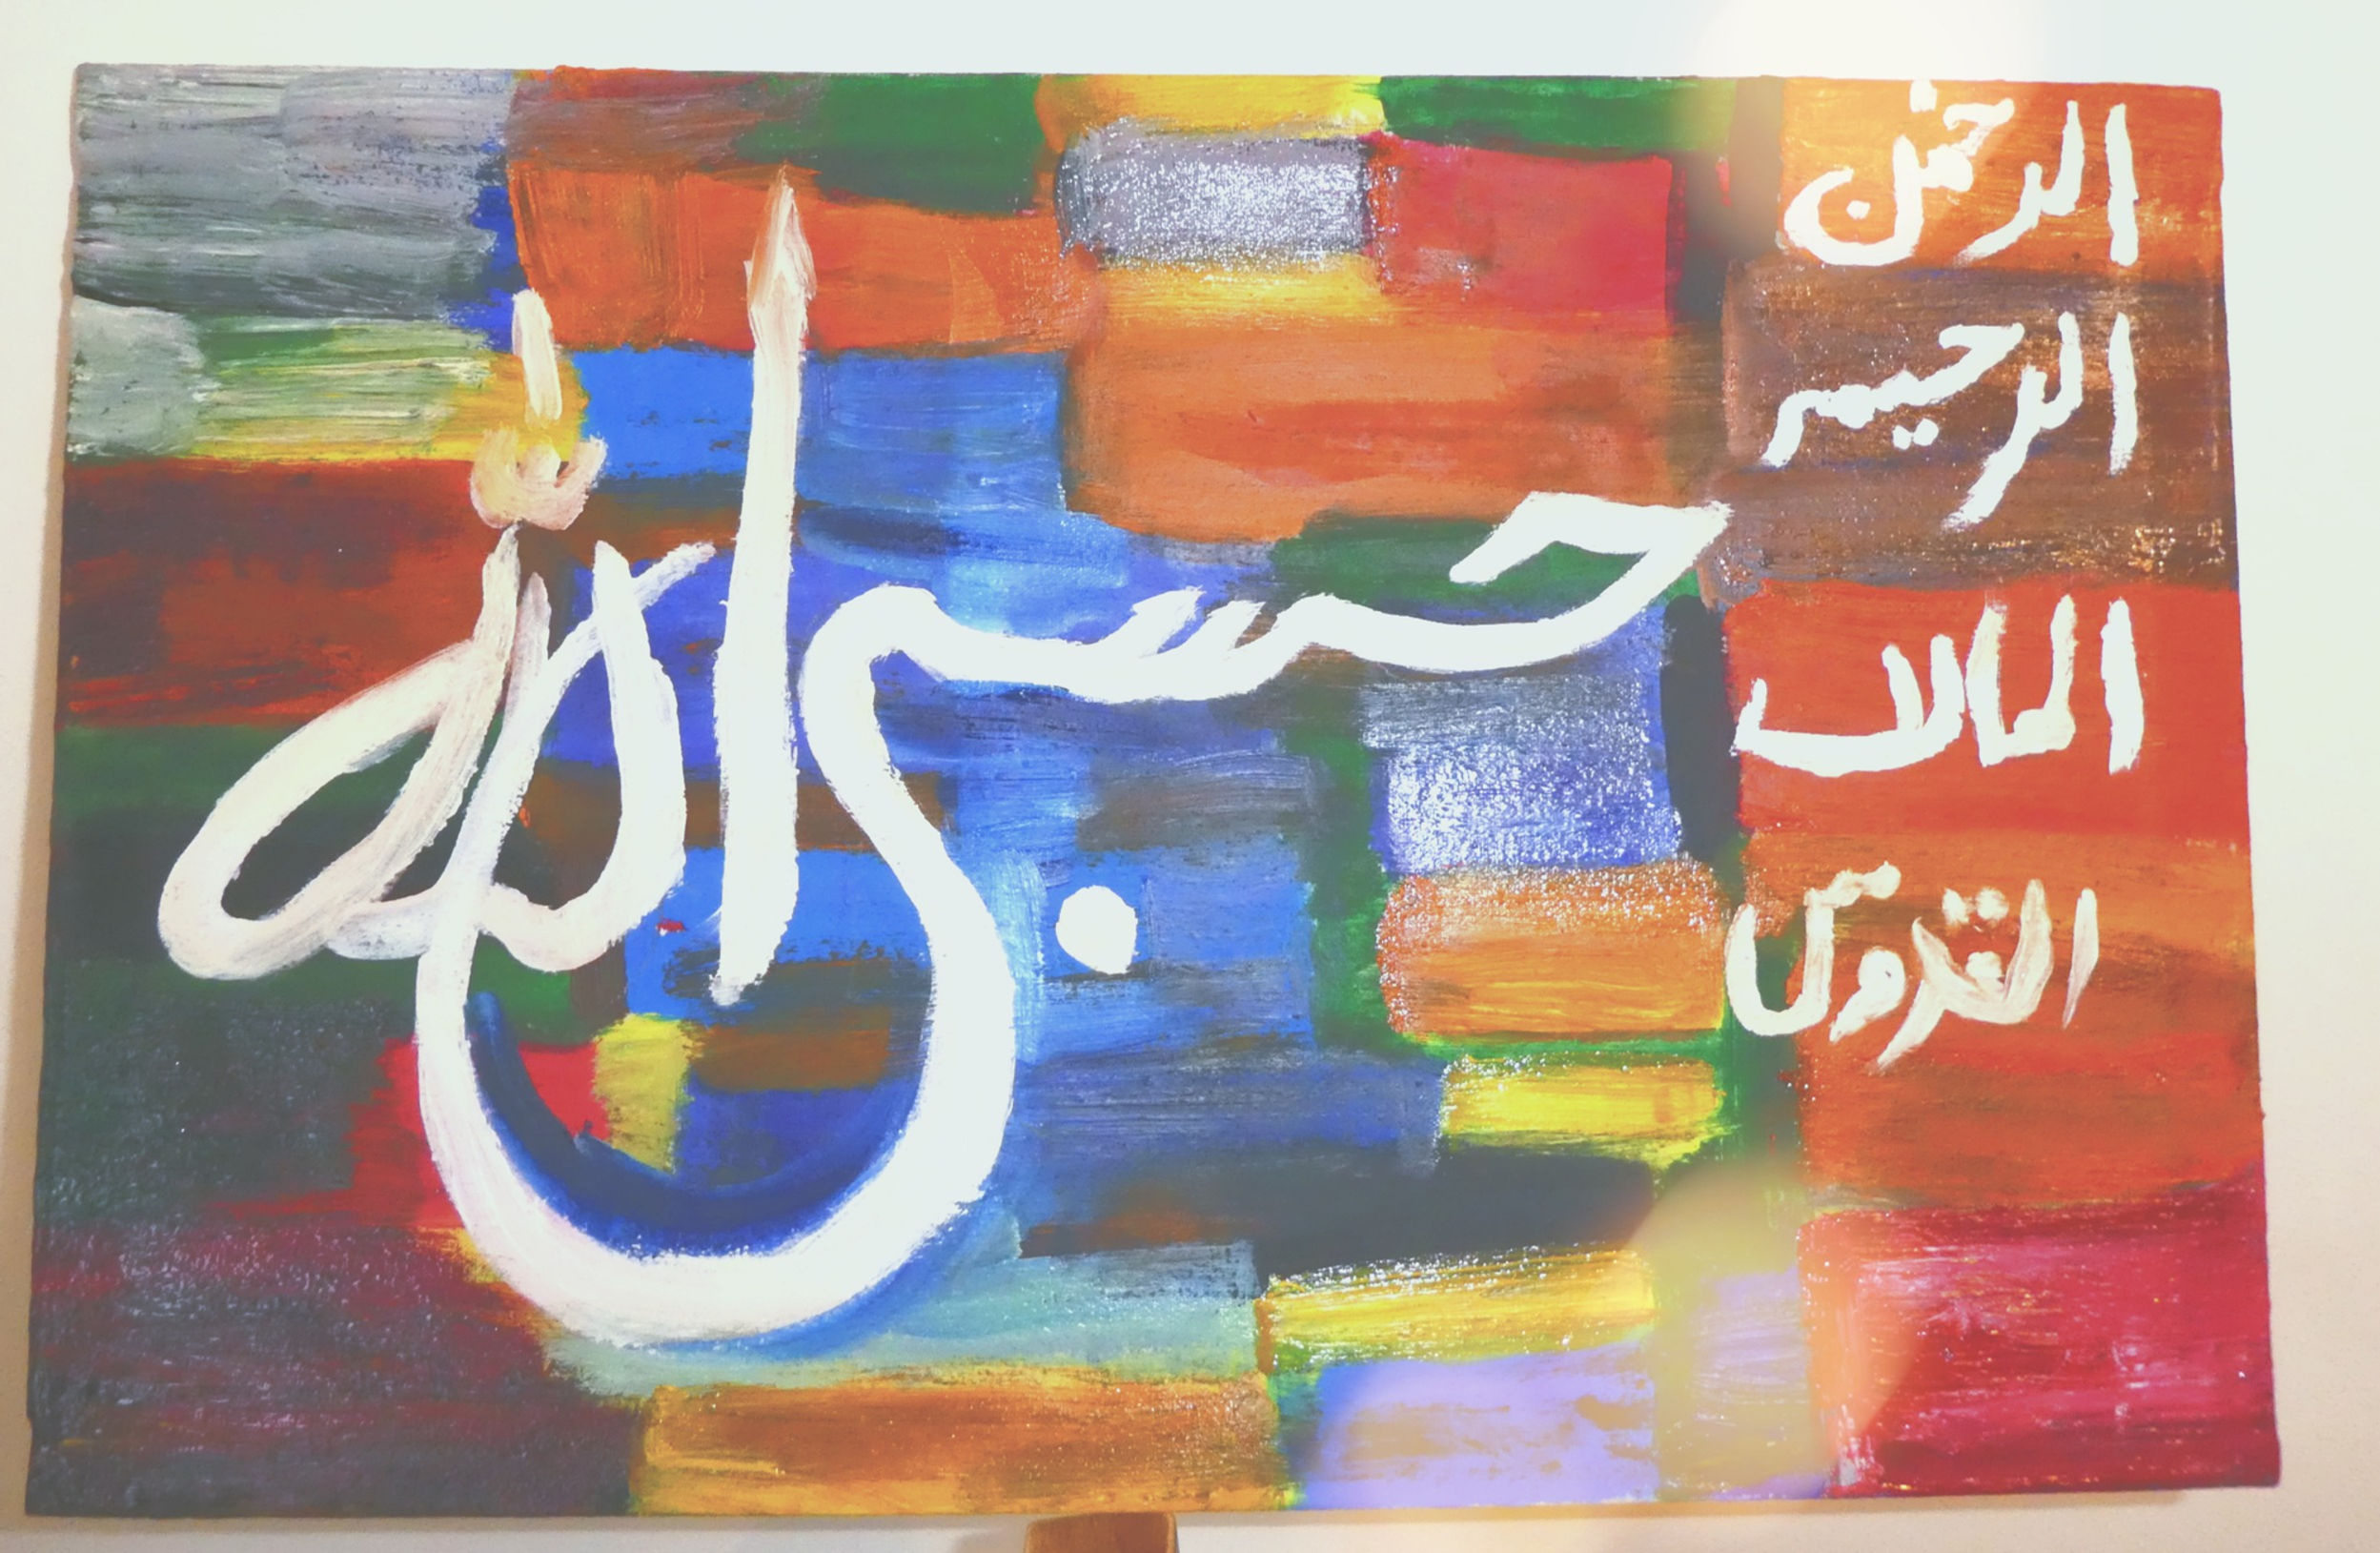 الرحمن
الرحيم
حسبي الله
الملك
القدوس